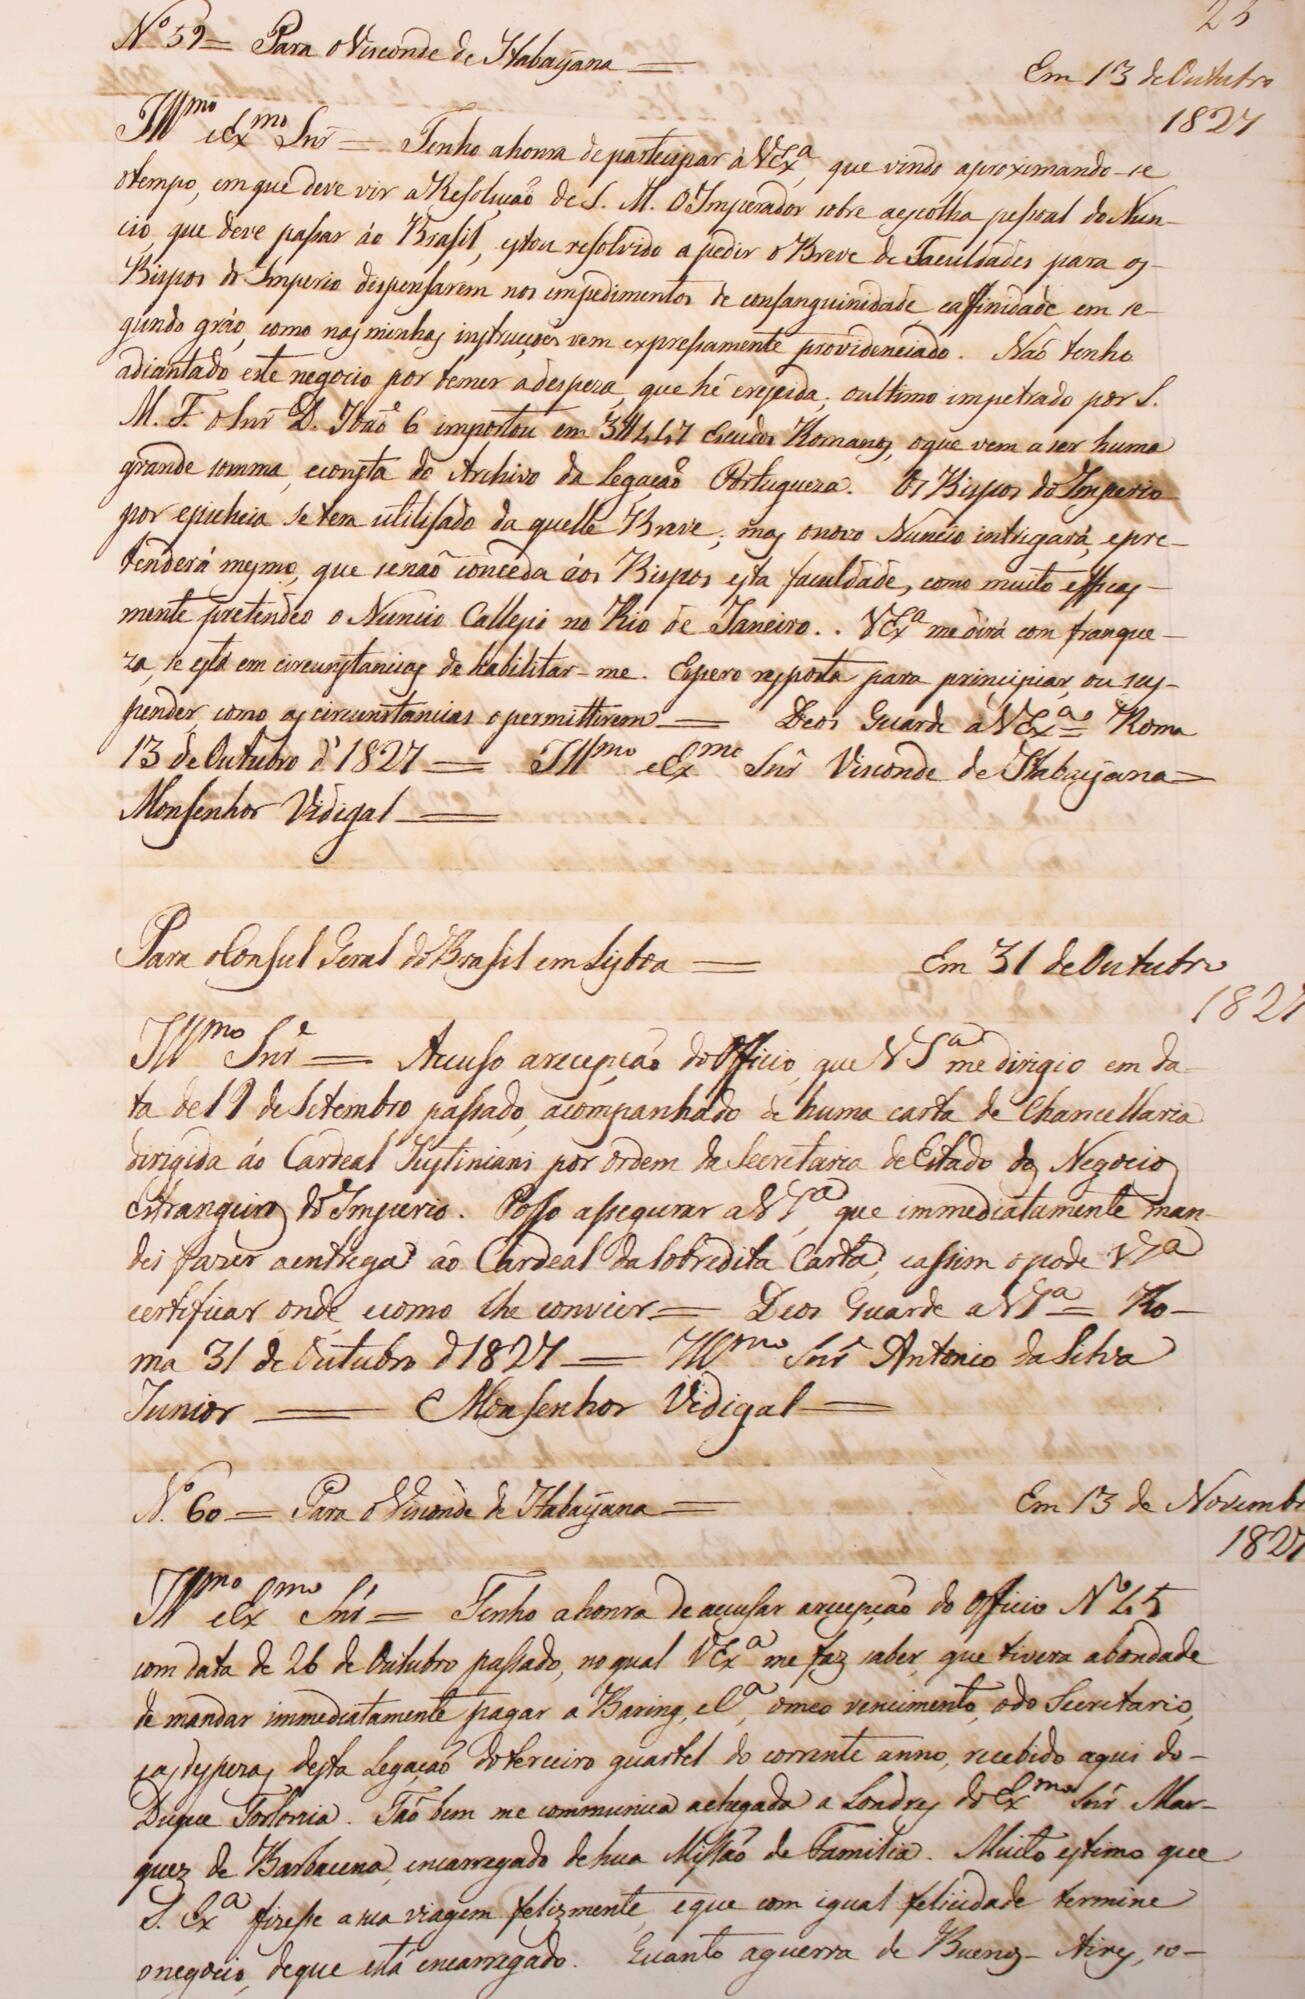 25
Nº 59 = Para o Visconde de Itabayana =
Em 13 de Outubro
1827
Illmo e Exmo Snr = Tenho a honra de participar á V Exª, que vindo aproximando-se
o tempo, em que deve vir a Resolução de S. M. O Imperador sobre a escolha pessoal do Nun-
cio, que deve passar áo Brasil, estou resolvido a pedir o Breve de Faculdades para os
Bispos do Imperio dispensarem nos impedimentos de consanguinidade e affinidade em se-
gundo gráo, como nas minhas instrucções vem expressamente providenciado. Não tenho
adiantado este negocio por temer a despeza, que hé crescida; o ultimo impetrado por S.
M. F. o Snr D. João 6 importou em 3447 Escudos Romanos, o que vem a ser huma
grande somma, e consta do Archivo da Legação Portugueza. Os Bispos do Imperio
por epicheia se tem utilisado da quelle Breve; mas o novo Nuncio intrigará, e pre-
tenderá mesmo, que se não conceda áos Bispos esta faculdade, como muito efficas-
mente pretendêo o Nuncio Callepi no Rio de Janeiro.. V Exª me dirá com franque-
za, se está em circunstancias de habilitar-me. Espero resposta para principiar, ou sus-
pender como as circunstancias o permittirem = Deos Guarde á V Exª = Roma
13 de Outubro d' 1827 = Illmo e Exmo Snr Visconde de Itabayana =
Monsenhor Vidigal =
Para o Consul Geral do Brasil em Lisboa =
Em 31 de Outubro
1827
Illmo Snr = Accuso a recepção do Officio, que V Sª me dirigio em da-
ta de 19 de Setembro passado, acompanhado de huma carta de Chancellaria
dirigida áo Cardeal Justiniani por ordem da Secretaria de Estado dos Negocios
Estrangeiros do Imperio. Posso assegurar a V Sª, que immediatamente man-
dei fazer a entrega áo Cardeal da Sobredita Carta, e assim o pode V Sª
certificar onde, e como lhe convier = Deos Guarde a V Sª = Ro-
ma 31 de Outubro d' 1827 = Illmo Snr Antonio da Silva
Junior = Monsenhor Vidigal =
Nº 60 = Para o Visconde de Itabayana =
Em 13 de Novembro
1827
Illmo e Exmo Snr = Tenho a honra de accusar a recepção do Officio Nº 45
com data de 26 de Outubro passado, no qual V Exª me faz saber, que tivera a bondade
de mandar immediatamente pagar a Baring, e Cª, o meo vencimento, o do Secretario,
e as despezas desta Legação do terceiro quartel do corrente anno, recebido aqui do
Duque Torlonia. Tão bem me communica a chegada a Londres do Exmo Snr Mar-
quez de Barbacena, encarregado de hua Missão de Familia. Muito estimo que
S. Exª fizesse a sua viagem felizmente, e que com igual felicidade termine
o negocio, de que está encarregado. Quanto a guerra de Buenos-Aires, so-